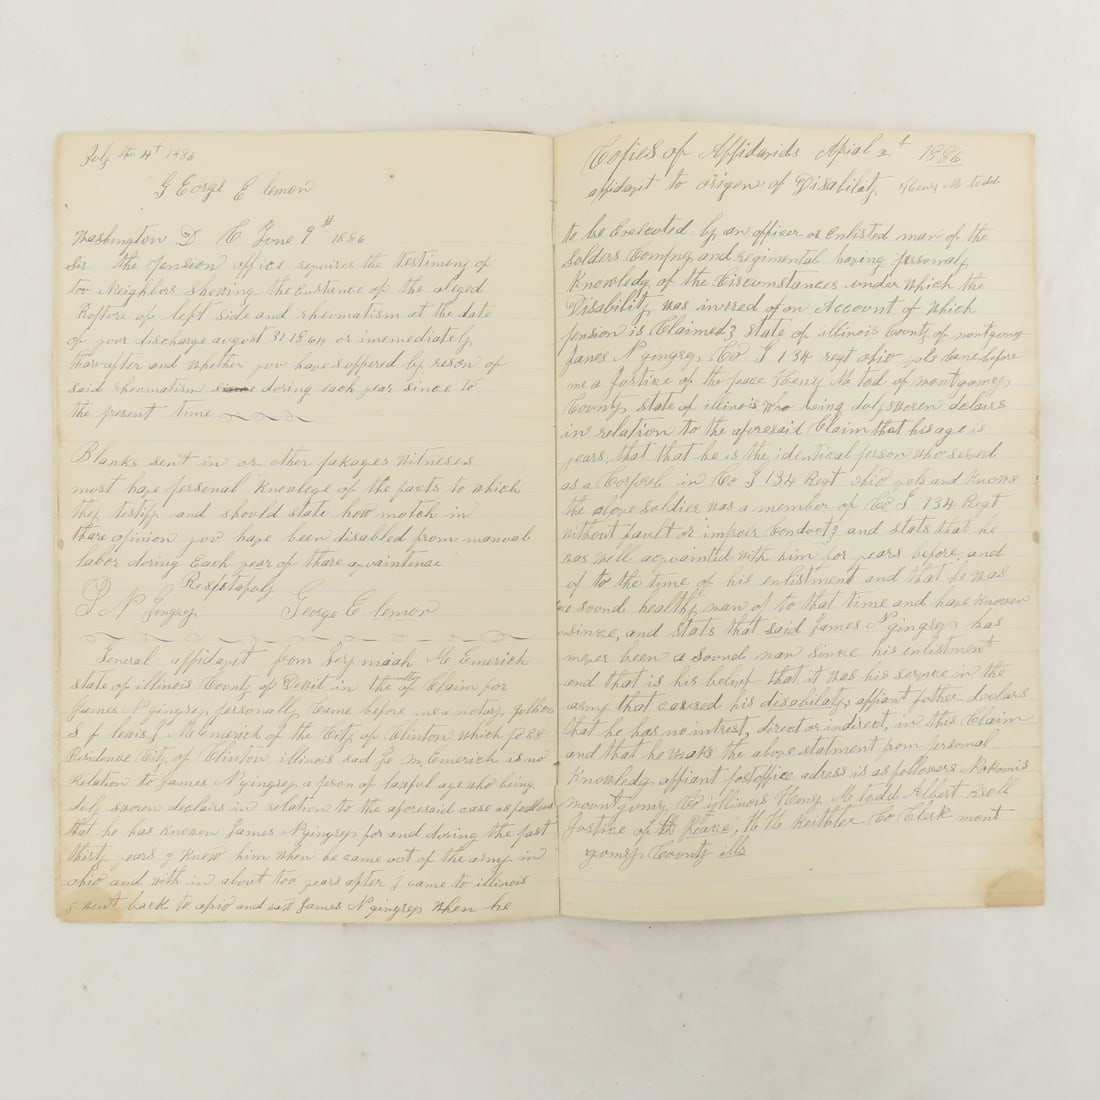 July the 4t 1886
GEorge E lemon
Washington D C June 9th 1886
Sir the Pension office requires the testimony of
too Neighbors showing the Existence of the aleged
Rupture of left side and rheumatism at the date
of your discharge august 31 1864 or imemediately
thareafter and whether you have suffered by reson of
said rheumatism during each year since to
the present time
Blanks sent in or other pakages Witneses
most have personal Knowlege of the facts to which
they testify and should state how motch in
thare opinion you have been disabled from manual
labor during Each year of thare aquaintence
Respetafoly
J N Gingrey George E lemon
General affidavit from Jerymiaah Mc Emerich
state of illinois County of Dewit in the Claim for
James N gingrey personally Came before me a notary
Mc Emerick of the City of Clinton which
Residence City of Clinton illinois said Je m Emerich is no
Relation to James N gingrey a person of lawful age who being
duly sworen declairs in relation to the aforesaid case as
that he has Knowen James N gingrey for and during the past
thirty years I Knew him When he came out of the army in
ohio and with in about too years after I came to illinois
I went back to ohio and James N gingrey when he
Copies of Affidavids Apial 2t 1886
affidavit to origen of Disability Henry M todd
to be Executed by an officer or Enlisted man of the
Solders Compny and regimental having personaly
Knowledg of the Circumstances under which the
Disability was inured of on Account of Which
Pension is Claimed state of illinois County of montgomry
James N gingrey Co I 134 regt ohio vols Came before
me a Justice of the peace Henry M tod of montgomey
County state of illinois Who being duly sworen delairs
in relation to the aforesaid Claim that his age is
years, that that he is the identical person who served
as a Corprel in Co I 134 Regt Ohio vols and Knows
the above soldier was a member of Co I 134 Regt
without fault or improir Conduct and stats that he
was well acquainted with him for years before, and
up to the time of his enlistment and that he was
sound healthy man up to that time and have Knowen
since, and stats that said James N gingrey has
never been a sound man since his enlistment
and that is his belief that it was his service in the
army that caused his disabilaty, affiant father Declars
that he has no intrest, direct or indirect, in this Claim
and that he maks the above statment from personal
Knowledg affiant postoffice adress is as followes Nokomis
montgomry Co illinois Henry M todd Albert
Justice of the peace, Keithler Co Clerk mont
gomry County ills